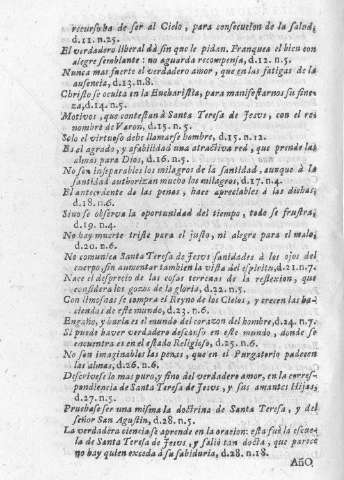 recurso ha de ser al Cielo, para consecucion de la salud,
d.11. n.25.
El verdadero liberal dà sin que le pidan. Franquea el bien con
alegre semblante: no aguarda recompensa, d.12. n.5.
Nunca mas fuerte el verdadero amor, que en las fatigas de la
ausencia, d.13. n.8.
Christo se oculta en la Eucharistia, para manifestarnos su fine-
za, d.14. n.5.
Motivos, que contestan à Santa Teresa de Jesvs, con el re
nombre de Varon, d.15. n.5.
Solo el virtuoso debe llamarse hombre, d.15. n.12.
Es el agrado, y afabilidad una atractiva red, que prende las
almas para Dios, d.16. n.5.
No son inseparables los milagros de la santidad, aunque à la
santidad authorizan mucho los milagros, d.17. n.4.
El antecedente de las penas, hace apreciables à las dichas,
d.18. n.6.
Sino se observa la oportunidad del tiempo, todo se frustra,
d.19. n.4.
No hay muerte triste para el justo, ni alegre para el malo,
d.20. n.6.
No comunica Santa Teresa de Jesvs sanidades à los ojos del
cuerpo, sin aumentar tambien la vista del espiritu, d.21. n.7.
Nace el desprecio de las cosas terrenas de la reflexion, que
considera los gozos de la gloria, d.22. n.5.
Con limosnas se compra el Reyno de los Cielos, y crecen las ha-
ciendas de este mundo, d.23. n.6.
Engaño, y burla es el mundo del corazon del hombre, d.24. n.7.
Si puede haver verdadero descanso en este mundo, donde se
encuentra es en el estado Religioso, d.25. n.6.
No son imaginables las penas, que en el Purgatorio padecen
las almas, d.26. n.6.
Descrivese lo mas puro, y fino del verdadero amor, en la corres-
pondiencia de Santa Teresa de Jesvs, y sus amantes Hijas,
d.27. n.5.
Pruebase ser una misma la doctrina de Santa Teresa, y del
señor San Agustin, d.28. n.5.
La verdadera ciencia se aprende en la oracion: esta fuè la escue-
la de Santa Teresa de Jesvs, y saliò tan docta, que parece
no hay quien exceda à su sabiduria, d.28. n.18.
AñO,